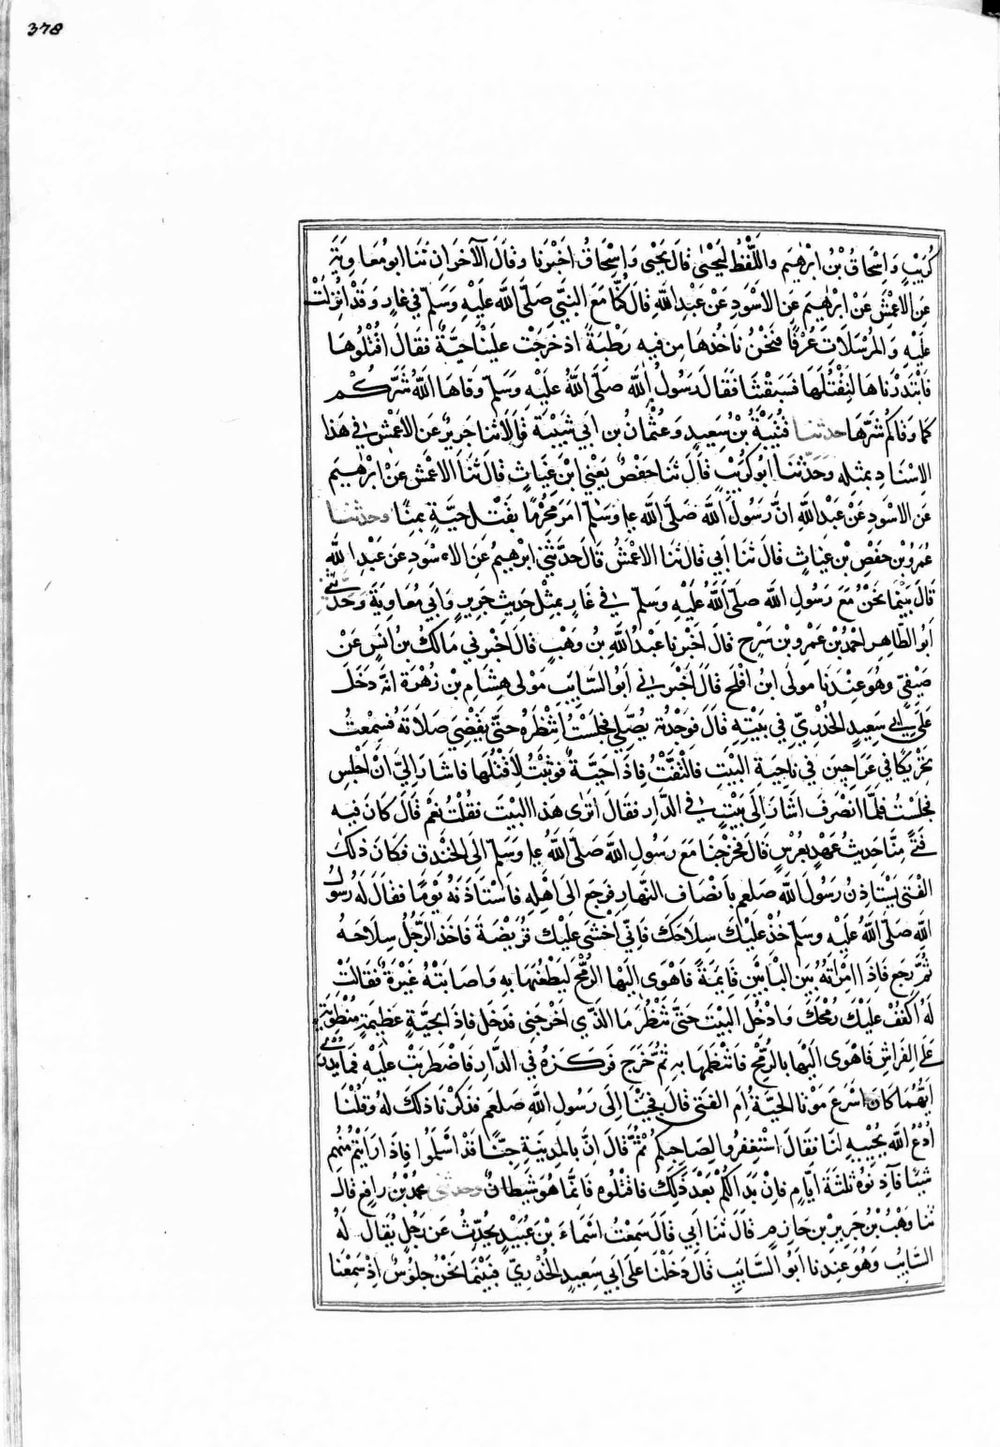 378
كُرَيْبٍ وَاِسْحَاقُ بْنُ ابْرٰهِيَم واللَّفْظُ لِيَحْيٰى قال يَحْيٰى وَاِسْحَاقُ اخْبَرَنا وقَالَ الآخَرَانِ ثَنَا ابو مُعَاوِيَةَ
عَنِ الاعْمَشِ عَنْ ابْرٰهِيَم عَنِ الاَسْوَدِ عَنْ عَبْدِ اللّٰه قالَ كُنَّا مَعَ النبّيِ صَلَّى الله عَلَيْهِ وَسَلّم فى غَارٍ وَقَدْ اُنْزِلَتْ
عَلَيْهِ وَالمُرْسَلَات عُرْفًا فنَحْنُ نَاخُذُهَا مِن فيه رَطْبَةً اذ خَرَجَت عَلَيْنَا حَيَّةٌ فقَالَ اقْتُلُوهَا
فَابْتَدَرْنَاهَا لِنَقْتُلَهَا فَسَبَقَتْنَا فَقَالَ رَسُولُ اللّٰه صَلَّى اللّٰهُ عَلَيْهِ وَسَلّم وَقَاهَا اللّٰهُ شَرَّكُم
كما وَقَاكُم شَرَّهَا حدثنا قُتَيْبَةُ بْنُ سَعِيدٍ وَعُثْمَانُ بن ابي شَيْبَةَ قَالَا ثنا جرِيرٌ عَنِ الاعْمَشِ فى هَذا
الاسْنَادِ بمثله وَحَدَّثَنا ابو كُرَيْبٍ قَالَ ثنا حَفْصٌ يَعْني ابْنَ غِيَاثٍ قالَ ثَنَا الاعْمَش عَن ابْرٰهِيَم
عَنِ الاَسْوَدِ عَنْ عَبْدِ اللّٰه انَّ رَسُولَ اللّٰه صَلَّى اللّٰه علي وَسَلّم امَرَ مُحْرِمًا بقَتْلِ حَيَّةٍ بمِنًا وحدثنا
عُمَرُ بْن حَفْصِ بْن غِيَاثٍ قالَ ثَنا أبي قال ثَنا الاعْمَشُ قَالَ حَدَّثَنِي ابْرٰهِيمُ عَنِ الاسْودِ عن عَبْدِ اللّٰه
قَالَ بَيْنَمَا نَحْنُ مَعَ رَسُولِ اللّٰه صَلَّى اللّٰهُ عَلَيْهِ وَسَلّم فى غَارٍ بمِثْلِ حَدِيثِ جَرِيرٍ وَأبي مُعَاوِيَةَ وَحَدَّثَني
ابُو الطَّاهِرِ احْمَدُ بْن عَمْرِو بْن سَرْحٍ قالَ اخْبَرَنا عَبْدُ اللّٰه بْن وَهْبٍ قالَ اخْبَرَني مَالكُ بْن انَسٍ عَنْ
صَيْفيّ وهُوَ عِنْدَنا مولى ابْنِ افْلَحَ قَالَ اَخْبَرَني ابُو السَّايِبِ مَوْلى هِشَامِ بْن زُهْرَةَ انَّه دَخَلَ
عَلَى ابى سَعِيدٍ الخُدْرِيّ في بَيْتِهِ قَالَ فوَجَدْتُه يُصَلّي فجَلَسْتُ انْتَظِرُهُ حَتّى يَقْضِيَ صَلَاتَهُ فسَمِعْتُ
تَحْرِيكًا في عَرَاجِينَ في نَاحِيَةِ البَيْتِ فَالْتَفَتُّ فاِذَا حَيَّةٌ فوَثَبْتُ لِأقْتُلَهَا فاشَارَ اِلَيّ انْ اجْلِسِ
فجَلَسْتُ فلَمَّا انْصَرَفَ اشَارَ اِلَى بَيْتٍ فى الدَّارِ فقَالَ اتَرَى هَذا البَيْتَ فقُلْتُ نَعَمْ قَالَ كَانَ فيه
فَتًى مِنَّا حَدِيثُ عَهْدٍ بعُرْسٍ قَالَ فخَرَجْنَا مَعَ رَسُولِ اللّٰه صَلَّى اللّٰهُ علي وَسَلّم الَى الخَنْدَقِ فكَانَ ذلكَ
الفَتَى يَسْتَاذِنُ رَسُولَ اللّٰه صَلعم بِاَنصَافِ النَهارِ فيَرجع الَى اهْلِهِ فاسْتَاذَنَهُ يَوْمًا فقَالَ لَهُ رَسُولُ
اللّٰه صَلَّى اللّٰهُ عَلَيْهِ وسَلّم خُذْ عَلَيْكَ سِلَاحَكَ فَاِنّي اَخْشَى عَلَيْكَ قُرَيْضَةَ فَاخَذَ الرّجُلُ سِلَاحَهُ
ثُمَّ رَجَع فَاِذَا امْرَاَتُهُ بَيْنَ البَابَيْنِ قَايِمَةً فَاهْوَى اِلَيْهَا الرُمْحَ ليَطْعُنَهَا بِهِ واصَابَتْهُ غَيْرَةٌ فقَالَتْ
لَهُ اكْفُفْ عَلَيْكَ رُمْحَكَ وَادْخُلِ البَيْتَ حَتّى تَنْظُرَ مَا الَّذِي اخْرَجَنِى فدَخَل فاِذَا بحَيَّةٍ عَظِيمَةٍ مُنْطَوِيَةٍ
عَلَى الفِرَاشِ فاهْوَى الَيْهَا بالرُمْحِ فَانتَظَمَهَا بهِ ثُمَّ خَرَجَ فرَكَزَهُ في الدَّارِ فاضْطَرَبَتْ عَلَيْهِ فمَا يُدْرى
ايّهُمَا كَانَ اسْرَعَ مَوْتا الحَيَّةُ امِ الفَتَى قالَ فجِئْنَا اِلَى رَسُولِ اللّٰه صَلعم فذَكَرْنا ذلكَ له وقُلْنَا
ادْعُ اللّٰه يُحْيِيه لَنَا فقَالَ اسْتَغفِرُوا لِصَاحِبِكُم ثُمَّ قَالَ انَّ بالمَدِينَةِ جِنًّا قَدْ اسْلَمُوا فاِذَا رَايْتُم مِنْهُم
شَيْئا فآذِنُوه ثلثةَ ايَّامٍ فاِنْ بَدَا لكُمْ بَعْدَ ذَلِكَ فاقْتُلُوه فَانّمَا هُوَ شَيْطَانٌ وحدثنى محمدُ بْن رافعٍ قالَ
ثنا وَهْبُ بْنُ جَرِيرِ بْن حَازِمٍ قالَ ثَنَا ابي قالَ سَمِعْتُ اسْمَاءَ بْنَ عُبَيْدٍ يُحَدِّثُ عَن رَجُلٍ يُقَالُ لَهُ
السَّايِبُ وَهُوَ عِندَنا ابُو السَّايِبِ قَالَ دَخَلْنَا عَلَى ابي سَعِيدٍ الخُدْرِيّ فبَيْنَمَا نحَنُ جُلُوسٌ اِذ سَمِعْنَا